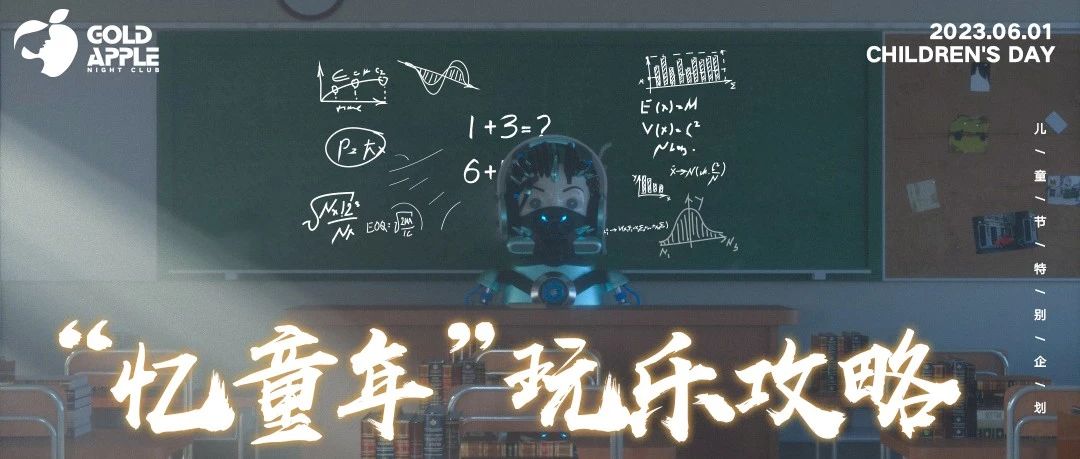 GOLD
APPLE
NIGHT CLUB
2023.06.01
CHILDREN'S DAY
儿/童/节/特/别/企/划
1+3=?
6+
E(x)=M
V(x)=
time
EOQ=
“忆童年”玩乐攻略